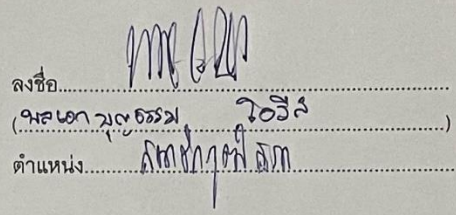 ลงชื่อ
(พลเอก บุญธรรม โอริส)
ตำแหน่ง สมาชิกวุฒิสภา